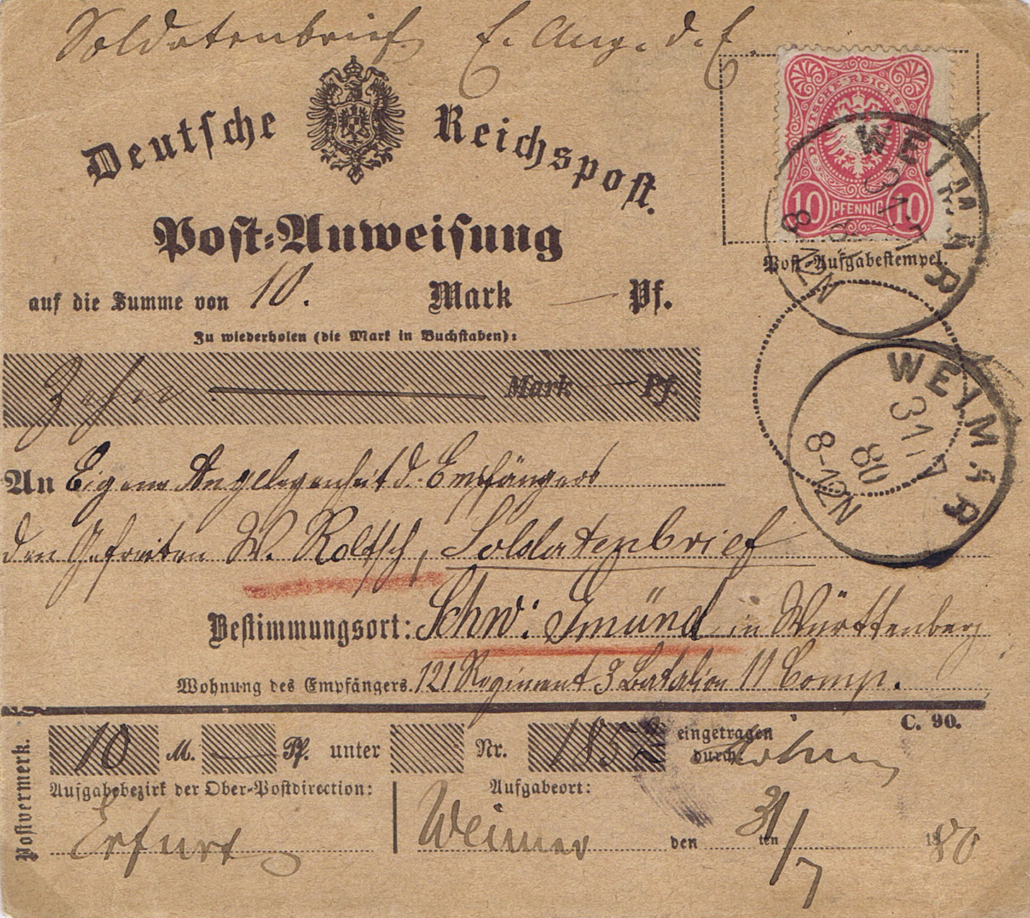 Soldatenbrief. E. Ang. d. E.
Deutsche Reichspost.
DEUTSCHE REICHS
10 PFENNIG 10
WEIMAR
31 7
80
8-12N
Post-Anweisung
Post-Aufgabestempel.
auf die Summe von 10. Mark — Pf.
Zu wiederholen (die Mark in Buchstaben):
Zehn — Mark — Pf.
WEIMAR
31 7
80
8-12N
An Eigene Angelegenheit d. Empfängers
den Gefreiten W. Roltsch, Soldatenbrief
Bestimmungsort: Schw: Gmünd in Württenberg
Wohnung des Empfängers. 121 Regiment 3 Batalion 11 Comp.
C. 90.
Postvermerk.
10 M. — Pf. unter Nr. 185 eingetragen
durch
Aufgabebezirk der Ober-Postdirection: Aufgabeort:
Erfurt Weimar den 31/7 ten 1880